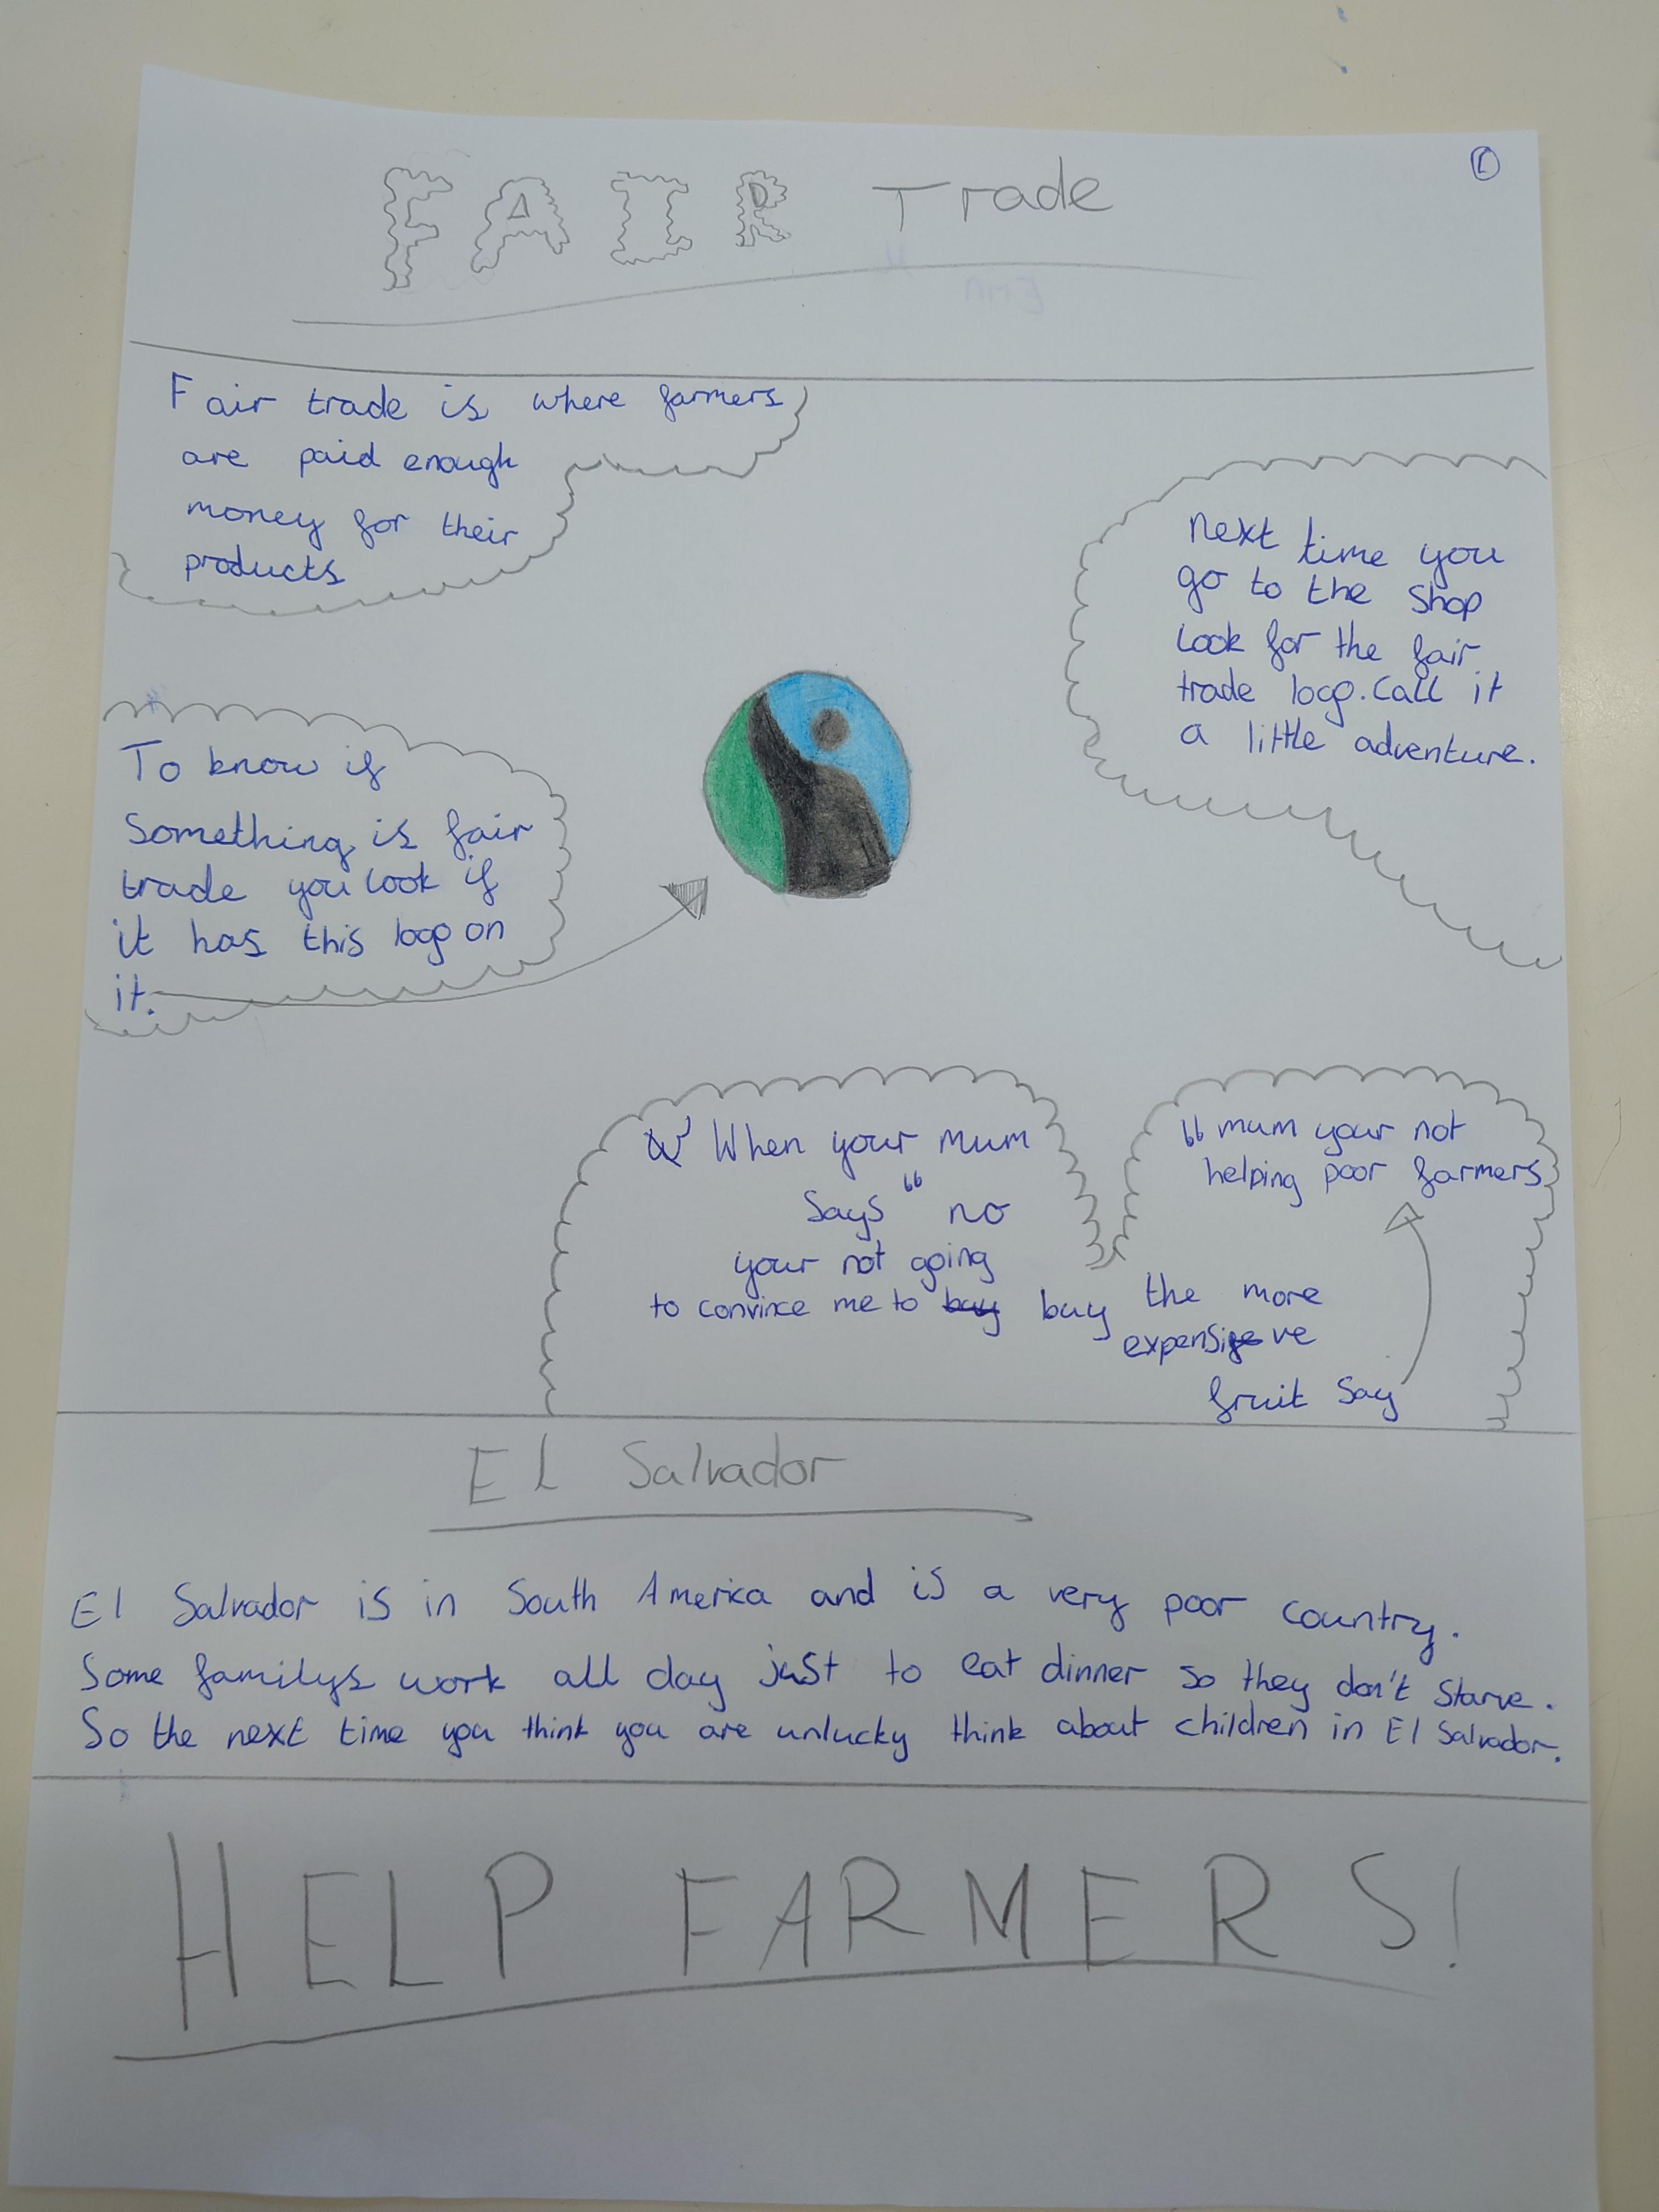 FAIR Trade
Fair trade is where farmers
are paid enough
money for their
products
next time you
go to the shop
look for the fair
trade logo. Call it
a little adventure.
To know if
Something is fair
trade you look if
it has this logo on
it.
When your mum
Says " no
your not going
to convince me to buy buy the more
expensive
fruit Say
" mum your not
helping poor farmers
El Salvador
El Salvador is in South America and is a very poor country.
Some familys work all day just to eat dinner so they don't starve.
So the next time you think you are unlucky think about children in El Salvador.
HELP FARMERS!